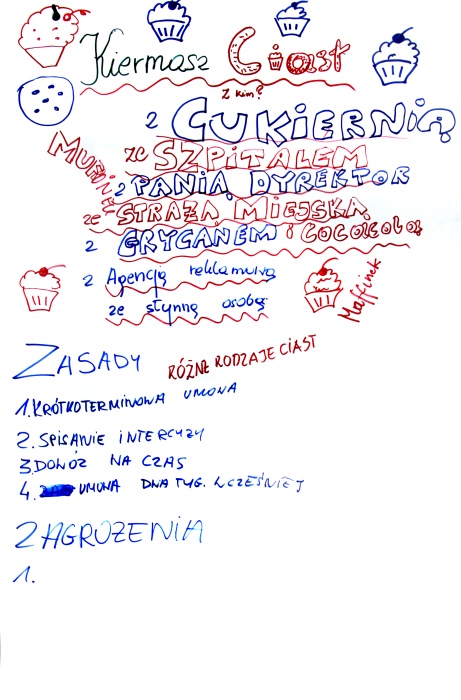 Kiermasz Ciast
z kim?
z CUKIERNIĄ
MUFINKI
ze SZPITALEM
z PANIĄ DYREKTOR
ze STRAŻĄ MIEJSKĄ
z GRYCANEM i
z Agencją reklamową
ze słynną osobą
Maffinek
ZASADY
RÓŻNE RODZAJE CIAST
1. KRÓTKOTERMINOWA UMOWA
2. SPISANIE INTERCYZY
3. DOWÓZ NA CZAS
4. UMOWA DWA TYG. WCZEŚNIEJ
ZAGROŻENIA
1.